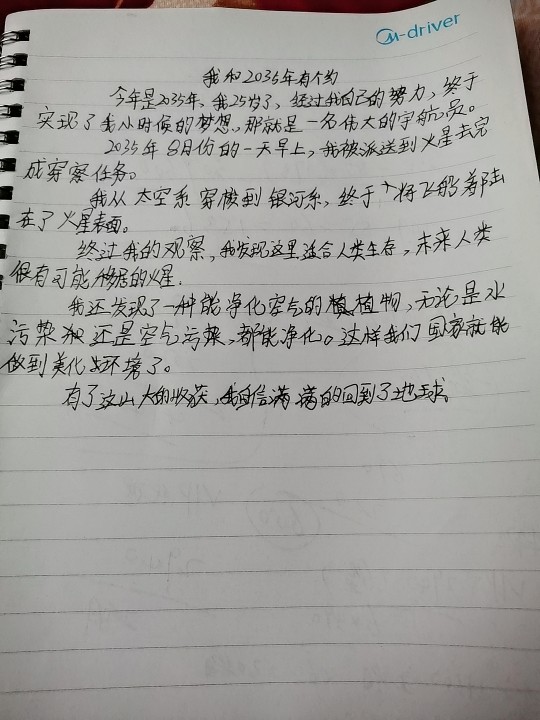 M-driver
我和2035年有个约
今年是2035年，我25岁了，经过我自己的努力，终于
实现了我小时候的梦想，那就是一名伟大的宇航员。
2035年8月份的一天早上，我被派送到火星去完
成穿察任务。
我从太空系穿梭到银河系，终于将飞船着陆
在了火星表面。
终过我的观察，我发现这里适合人类生存，未来人类
很有可能移居的火星.
我还发现了一种能净化空气的植物，无论是水
污染还是空气污染，都能净化。这样我们国家就能
做到美化环境了。
有了这大的收获，我自信满满的回到了地球。